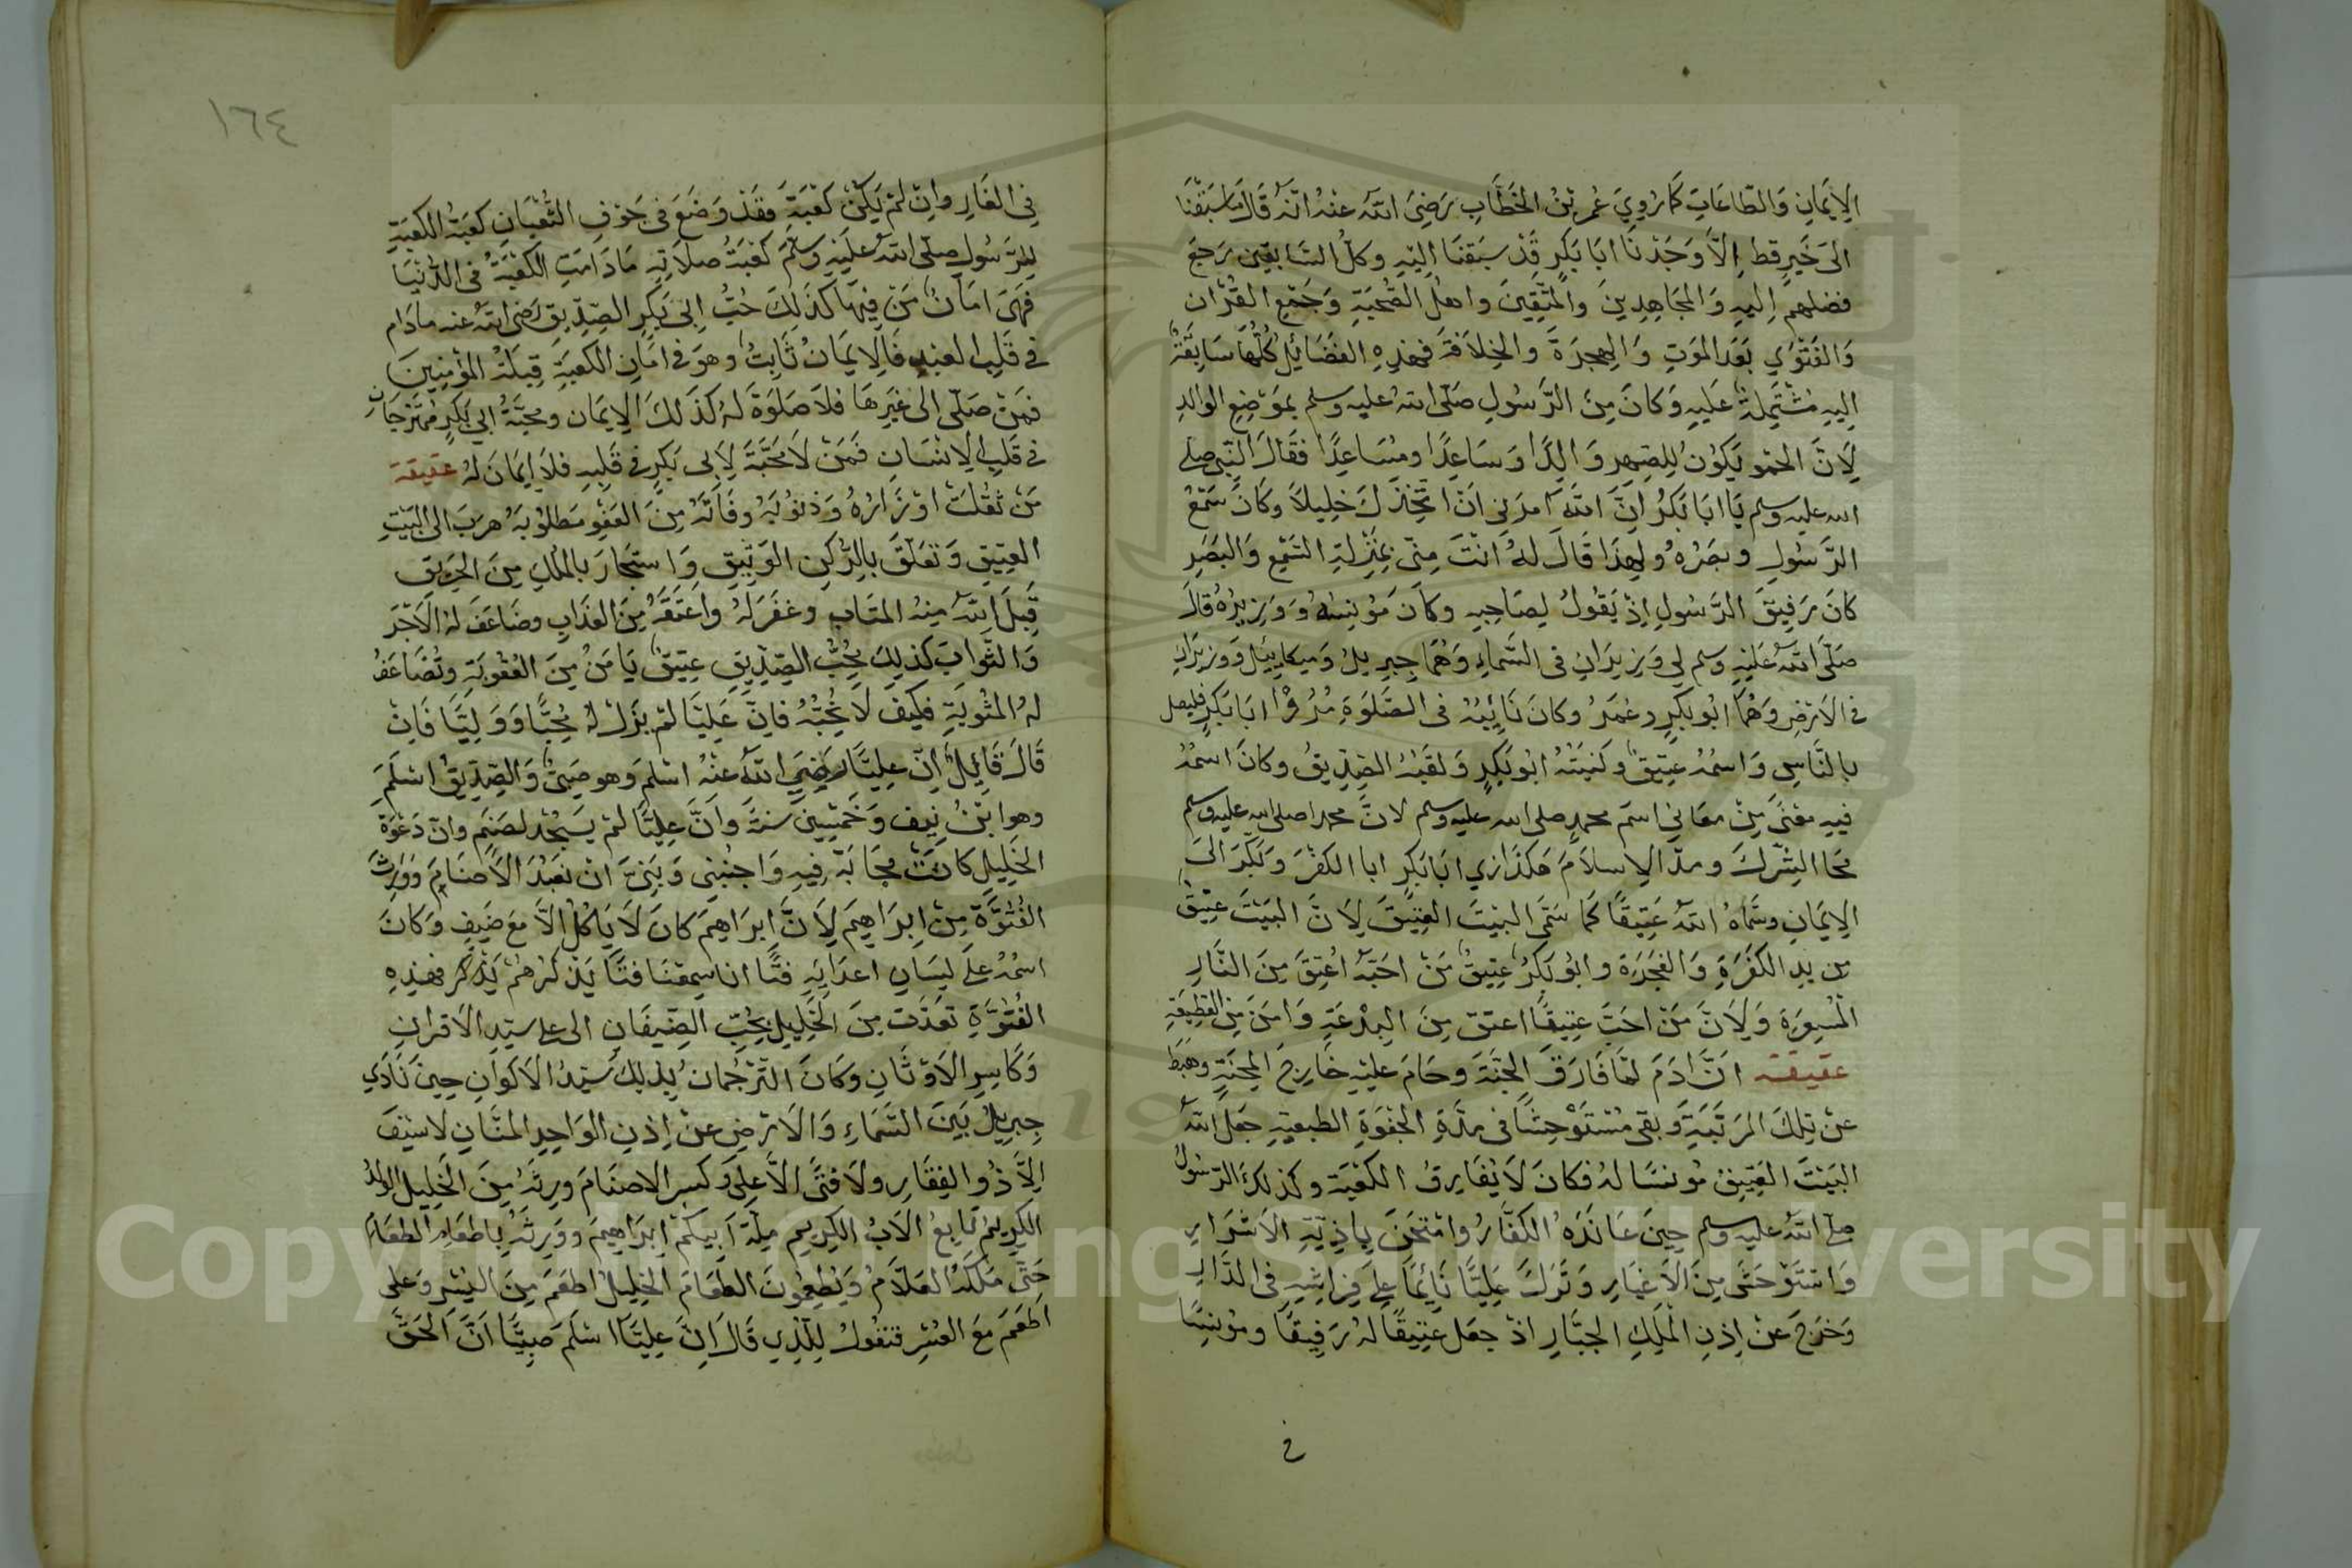 الإيمَانِ وَالطَّاعَاتِ كَمَا رُوِيَ عُمر بْنُ الخَطَّابِ رَضِىَ اللَّه عنْهُ انّهُ قَالَ مَا سَبَقْنَا
الىَ خَيرٍ قط إلاَّ وَجَدْنَا ابَا بَكرٍ قَدْ سَبَقنَا إليْهِ وكلُّ السَّابقِين يَرجعَ
فضلهم إليهِ وَالمجَاهِدِينَ والمتّقِينَ واهْلُ الصُّحبَةِ وَجَمْعِ القُرْانِ
وَالفَتْوَي بَعَد المَوَتِ وَالهِجرَةَ والخِلاَفةَ فهذِهِ الفضَائِلُ كُلُّهَا سَابِقَةٌ
إليهِ مُشْتَمِلةٌ عَليهِ وَكانَ مِنَ الرَّسُولِ صَلّى اللهُ عليه وسلم بموَضِعِ الوَالدِ
لِأَنَّ الحَمُو يَكوُن لِلصِّهرِ وَالِدًا وَسَاعِدًا ومُسَاعِدًا فقَالَ النّبى صلى
الله عليه وسلم يَا ابَا بَكرُ انَّ اللَّهَ امرَنِى انْ اتَّخِذَكَ خلِيلاً وكَانَ سَمْعُ
الرَّسُولِ وبصَرُهُ ولِهذَا قَالَ لهُ انْتَ مِنّى بِمَنْزِلةِ السَّمْعِ وَالبَصَرِ
كانَ رَفيقَ الرَّسُولِ إذْ يَقُولُ لِصَاحِبِهِ وكاَنَ مُؤْنِسُهُ وَوَزِيرُهُ قالَ
صَلّى اللَّهُ عَليْهِ وسلم لي وَزِيرَانِ فى السَّماءِ وَهُمَا جِبرِيل وَميكايئِل وَوزيرَانِ
فى الأرْضِ وَهُمَا ابُو بَكرٍ وعُمَرُ وكانَ نَائِبُهُ فى الصَّلَوةِ مُرُوْا ابَا بَكرٍ فليصل
بالنَّاسِ وَاسْمُهُ عتِيقٌ وكنيَتُهُ ابُو بَكرٍ وَلقَبُهُ الصِّدِّيقُ وكانَ اسْمُهُ
فيهِ مَعْنًى مِنْ معَاني اسْمَ محمدٍ صلى الله عليه وسلم لانَّ محمدا صلى الله عليه وسلم
مَحَا الشِّرْكَ ومدّ الإسلاَمَ هكذَا ابَا بَكرٍ ابا الكفْرَ وَبَكرَ الىَ
الإيمَانِ وسَمَّاهُ اللَّهُ عَتِيقًا كما سَمَّى البَيْتَ العتِيْقَ لِاَنَّ البَيْتَ عتِيْقٌ
من يدِ الكَفَرَةِ وَالفَجَرَة وابُو بَكرٍ عتِيقٌ مَنْ احَبَّهُ اُعْتِقَ مِنَ النَّارِ
المُسعرَة وَلِأَنَّ مَنْ احَبَّ عتِيقًا اعتق مِنَ البِدْعَةِ وَامنَ مِنَ القَطِيعَةِ
عقيقة انَّ ادَمَ لمّا فَارَقَ الجنَّةَ وحَامَ عليْهِ خَارجَ المِحنَةِ وهَبَطَ
عنْ تِلكَ المرَتَبَةِ وَبقى مُسْتَوْحِشًا فى مدّةِ الجفْوَةِ الطبعيّةِ جعَلَ اللهُ
البَيْتَ العَتِيْقَ مُونسًا لهُ فكانَ لاَ يُفَارِقُ الكعْبَة وكذلكَ الرّسُولُ
صلى اللهُ عليه وسلم حِينَ عَانَدَهُ الكفَّارُ وامْتُحنَ باذِيّةِ الاَشْرَارِ
وَاسْتَوْحَشَ مِنَ الاَغيَارِ وَتَركَ عَليًّا نَائِمًا علَى فِرَاشِهِ فى الدَّارِ
وَخَرَجَ عنْ إذنِ الْمَلِكِ الجبَّارِ اذْ جعَل عتِيقًا لهُ رَفِيقًا ومُؤنِسًا
في
١٦٤
فِى الغَارِ وانْ لمْ يَكُنْ كعْبَةً فقَدْ وَضَعَ فى جَوْفِ الثُّعْبَانِ كعبَهُ الكعْبَةِ
للرَّسُولِ صلّى اللهُ عَليْهِ وسلّمَ كعْبَةُ صلاَتِهِ مَا دَامَتِ الكعْبَةُ فى الدُّنْيَا
فَهِىَ امَانُ مَنْ فِيهَا كذَلِكَ حُبُّ ابى بَكرٍ الصّدِّيق رَضى اللهُ عنه ما دَام
فى قَلبِ العبْدِ فَالايمَانُ ثَابِتٌ وهوَ فى امَانِ الكعبَةِ قِبلَةُ المؤْمِنِينَ
فمَنْ صَلّى إلى غَيرِهَا فلاَ صَلوَةَ لهُ كذَلكَ الإيمَان ومحبَّةُ ابي بَكرٍ ممْتزجَانِ
فى قَلبِ الإنْسَانِ فَمَنْ لاَ مَحَبَّةَ لِابى بَكرٍ فى قَلبِهِ فلاَ إيمَانَ لهُ عقيقة
مَنْ ثقُلَتْ اوْزَارُهُ وَذنوُبُهُ وفَاتَهُ مِنَ العَفْوِ مَطلوُبهُ هرَبَ الى البَيْتِ
العتِيقِ وَتعَلّقَ بالرُّكنِ الوَثِيقِ وَاستجَارَ بالمَلِكِ مِنَ الحَرِيقِ
قَبِلَ اللهُ مِنْهُ المتَابَ وغفَرَ لهُ واعْتَقَهُ مِنَ العَذَابِ وضَاعَفَ لهُ الأَجْرَ
وَالثَّوابَ كذلِكَ مُحِبُّ الصِّدِّيقِ عتِيقٌ يَأمَنُ مِنَ العُقوُبَةِ وتُضَاعَفُ
لهُ المثُوبَةِ فكيفَ لاَ تُحِبُّهُ فانّ عَليًّا لمْ يزَلْ لهُ مُحِبًّا وَوَليًّا فَانْ
قَالَ قَائِلٌ انّ عليًّا رَضِىَ اللهُ عنْهُ اسْلمَ وهو صَبِىٌّ وَالصّدِّيقُ اسْلَمَ
وهو ابْنُ نيِفٍ وَخَمْسِينَ سَنةً وَانَّ عليًّا لمْ يسْجُدْ لصَنَمٍ وانّ دَعْوَةَ
الخَلِيلِ كانَتْ مجَابَةً فيهِ وَاجنُبْنِى وَبَنِىَّ انْ نعْبُدَ الاَصْنَامَ وَوَرِثَ
الفُتُوَّةَ مِنْ إبرَاهِيمَ لِأَنَّ إبرَاهيمَ كانَ لاَ يَاكُلُ الاَّ مَعَ ضَيفٍ وَكانَ
اسْمُهُ علَى لِسَانِ اعدَايِهِ فتًا انا سَمِعْنَا فتًا يَذكُرهُمْ يَذكر فهذِهِ
الفُتُوَّةِ تعَدَّت مِنَ الخَلِيلِ مُحِبِّ الضِّيفَانِ الى على سيّدِ الاَقرانِ
وَكَاسِرِ الاَوْثَانِ وكَانَ التَّرْجُمانُ بذلكَ سَيّدُ الاَكوَانِ حِينَ نَادَي
جِبرِيلُ بَينَ السَّمَاءِ وَالاَرْضِ عنْ إذنِ الوَاحِدِ المنَّانِ لا سَيْفَ
اِلاَّ ذُو الفقَارِ ولاَ فتًى الاَّ عَلى وَكسر الاصنَامَ وَرِثَهُ مِنَ الخَلِيلِ الولدُ
الكرِيمُ تابعُ الاَبُ الكرِيمِ مِلّةَ اَبيكُمْ ابرَاهِيمَ ووَرِثَهُ باطعَامِ الطعَامِ
حَتّى مَلَكَهُ العلّامُ وَيُطعِمُونَ الطعَامَ الخلِيلُ اطعَمَ مِنَ اليُسْرِ وَعلى
اَطعَمَ مَعَ العُسْرِ فنقولُ لِلّذِي قَالَ انَّ عليًّا اسْلَمَ صَبِيًّا انَّ الحَقَّ
Copyright © King Saud University